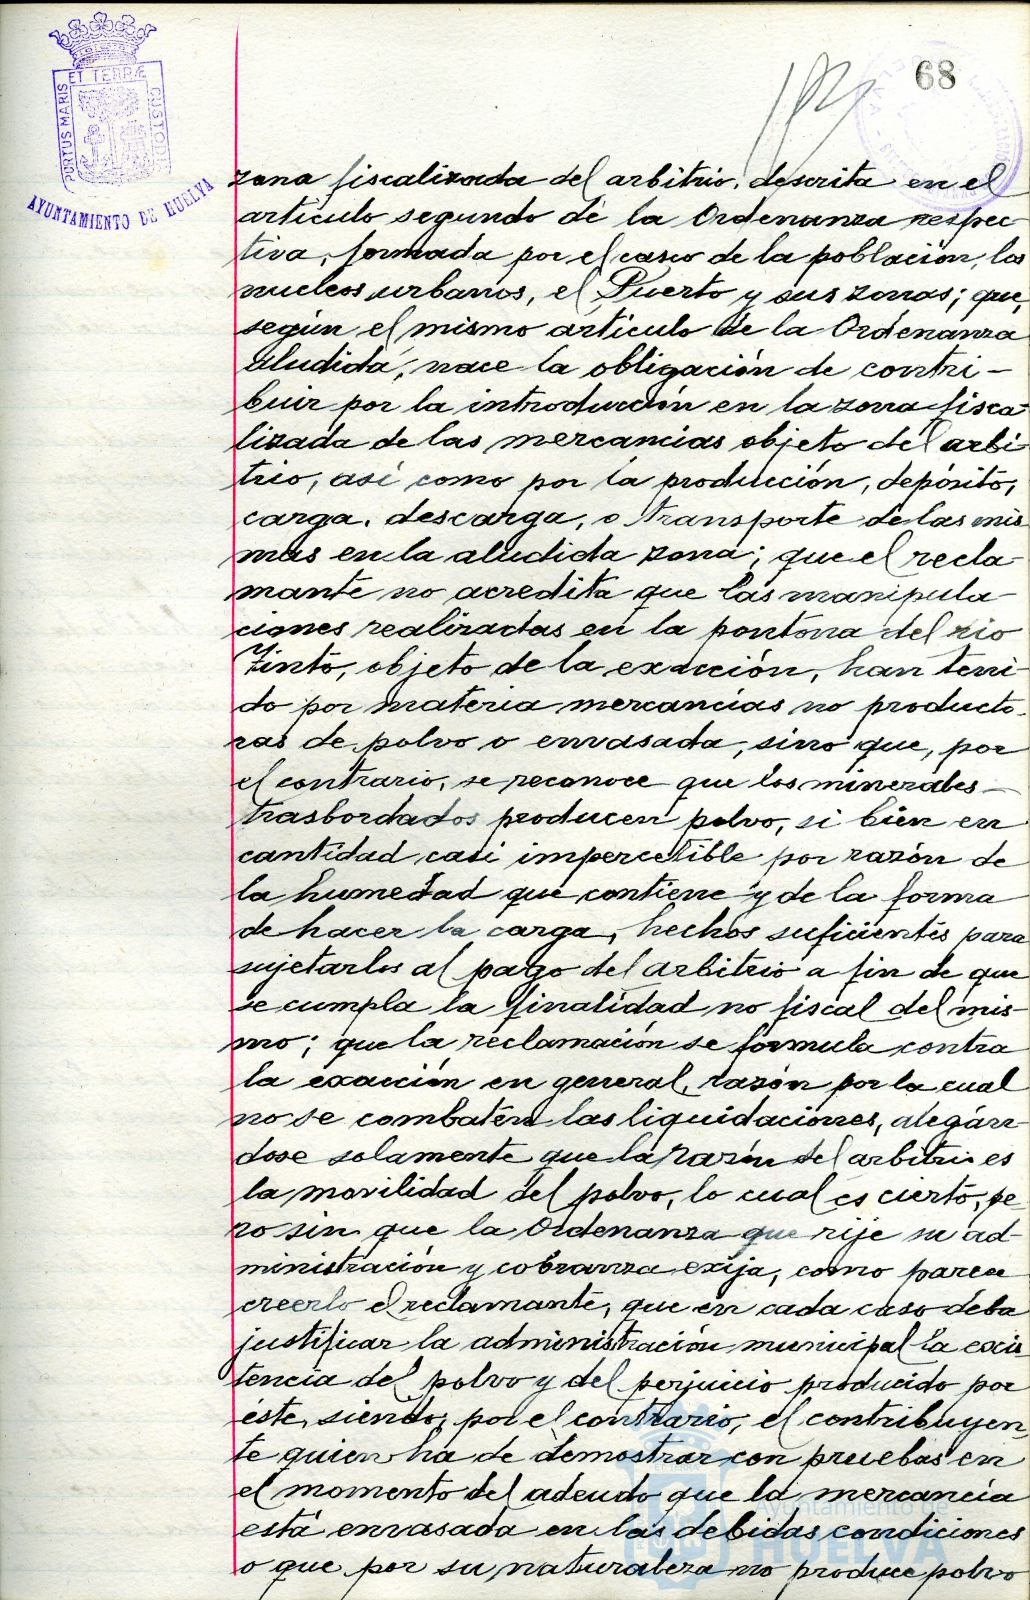 68
PORTUS MARIS ET TERRÆ CUSTODIA
AYUNTAMIENTO DE HUELVA
zona fiscalizada del arbitrio, descrita en el
artículo segundo de la Ordenanza respec-
tiva, formada por el casco de la población, los
nucleos urbanos, el Puerto y sus zonas; que,
según el mismo artículo de la Ordenanza
aludida, nace la obligación de contri-
buir por la introducción en la zona fisca-
lizada de las mercancias objeto del arbi-
trio, así como por la producción, depósito,
carga, descarga, o transporte de las mis
mas en la aludida zona; que el recla-
mante no acredita que las manipula-
ciones realizadas en la pontona del rio
Tinto, objeto de la exacción, han teni-
do por materia mercancías no producto-
ras de polvo o envasada, sino que, por
el contrario, se reconoce que los minerales
trasbordados producen polvo, si bien en
cantidad casi impercetible por razón de
la humedad que contiene y de la forma
de hacer la carga, hechos suficientes para
sujetarlos al pago del arbitrio a fin de que
se cumpla la finalidad no fiscal del mis-
mo; que la reclamación se formula contra
la exacción en general, razón por la cual
no se combaten las liquidaciones, alegán-
dose solamente que la razón del arbitrio es
la movilidad del polvo, lo cual es cierto, pe-
ro sin que la Ordenanza que rije su ad-
ministración y cobranza exija, como parece
creerlo el reclamante, que en cada caso deba
justificar la administración municipal la exis
tencia del polvo y del perjuicio producido por
éste, siendo, por el contrario, el contribuyen-
te quien ha de demostrar con pruebas en
el momento del adeudo que la mercancía
está envasada en las debidas condiciones
o que por su naturaleza no produce polvo
Ayuntamiento de
HUELVA